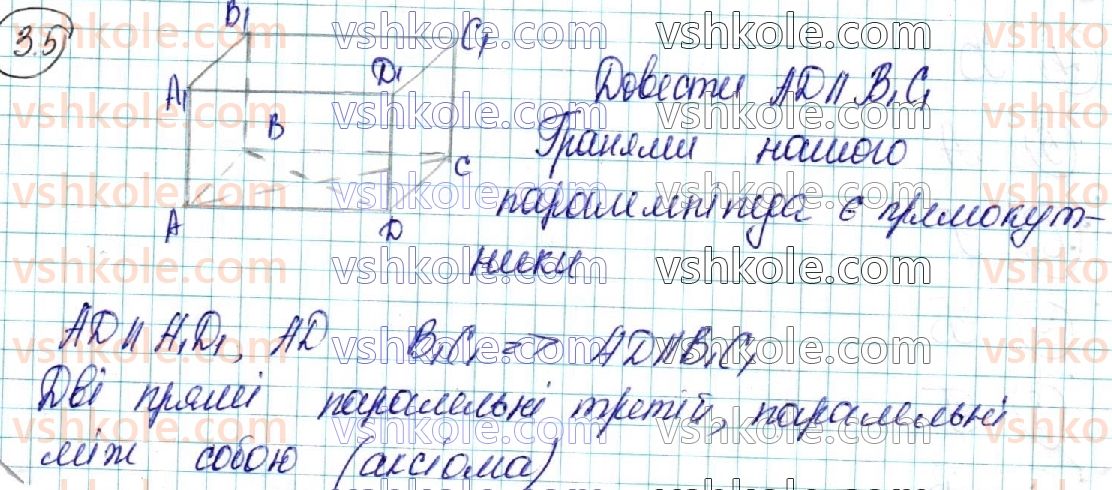 3.5
B₁
C₁
A₁
D₁
B
C
A
D
Довести AD ∥ B₁C₁
Гранями нашого
паралемпіпеда є прямокут-
ники
AD ∥ A₁D₁, AD B₁C₁ => AD ∥ B₁C₁
Дві прямі паралельні третій, паралельні
між собою (аксіома)
vshkole.com